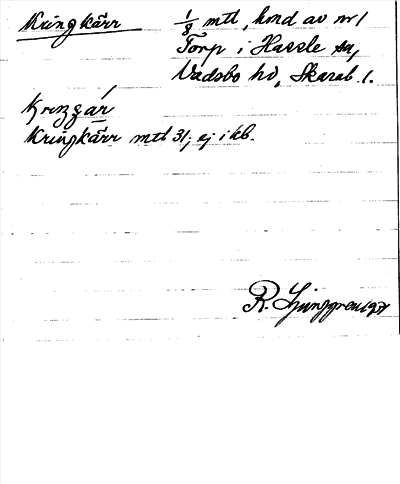 Kringkärr 1/8 mtl, hmd av nr 1
Torp i Hassle sn,
Vadsbo hd, Skarab. l.
Kringkärr mtl 31; ej i kb.
R. Ljunggren 1927